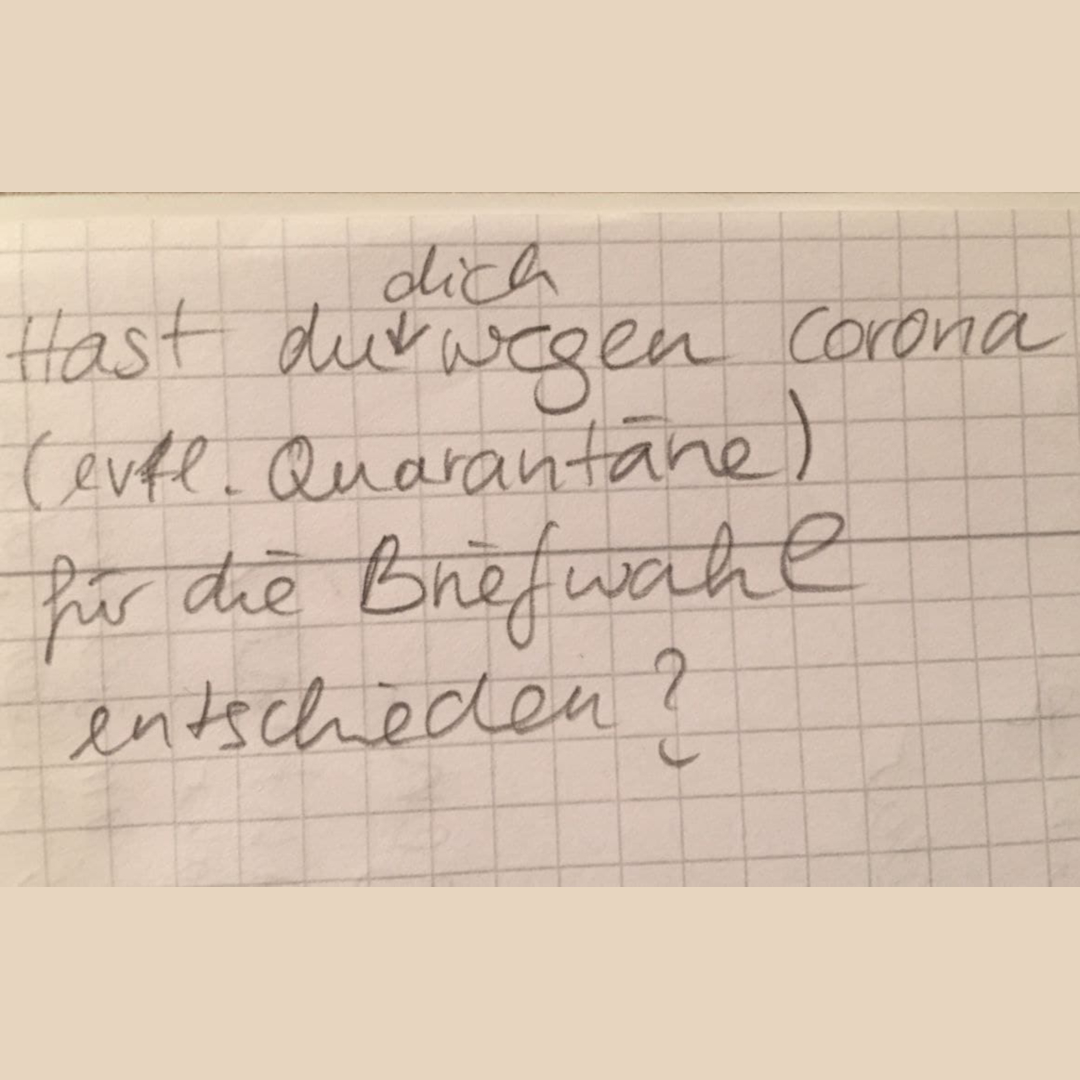 Hast du dich wegen Corona
(evtl. Quarantäne)
für die Briefwahl
entschieden?